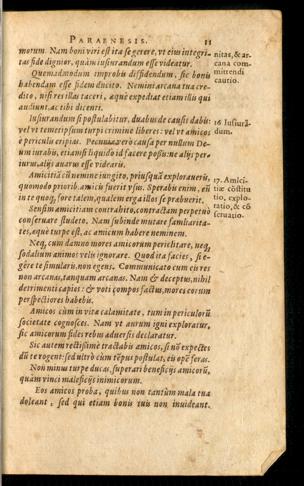 PARAENESIS. 11
morum. Nam boni viri est ita se gerere, vt eius integri-
tas fide dignior, quàm iusiurandum esse videatur.
Quemadmodum improbis diffidendum, sic bonis
habendam esse fidem ducito. Nemini arcana tua cre-
dito, nisi res illas taceri, aequè expediat etiam illis qui
audiunt, ac tibi dicenti.
Iusiurandum si postulabitur, duabus de causis dabis:
vel vt temetipsum turpi crimine liberes: vel vt amicos
è periculis eripias. Pecuniae verò causa per nullum De-
um iurabis, etiamsi liquidò id facere possis: ne alijs per-
iurus, alijs auarus esse videaris.
Amicitiā cū nemine iungito, priusquā exploraueris,
quomodo priorib. amicis fuerit vsus. Sperabis enim, eū
in te quoq, fore talem, qualem erga illos se praebuerit.
Sensim amicitiam contrahito, contractam perpetuò
conseruare studeto. Nam subinde mutare familiarita-
tes, aequè turpe est, ac amicum habere neminem.
Neq, cum damno mores amicorum periclitare, neq,
sodalium animos velis ignorare. Quod ita facies, si e-
gēre te simularis, non egens. Communicato cum eis res
non arcanas, tanquam arcanas. Nam & deceptus, nihil
detrimenti capies: & voti compos factus, mores eorum
perspectiores habebis.
Amicos cùm in vitae calamitate, tum in periculorū
societate cognosces. Nam vt aurum igni exploratur,
sic amicorum fides rebus aduersis declaratur.
Sic autem rectissimè tractabis amicos, si nō expectes
dū te rogent: sed vltrò cùm tēpus postulat, eis opē feras.
Non minus turpe ducas, superari beneficijs amicorū,
quam vinci maleficijs inimicorum.
Eos amicos proba, quibus non tantùm mala tua
doleant, sed qui etiam bonis tuis non inuideant.
nitas, & ar-
cana com-
mittendi
cautio.
16 Iusiurā-
dum.
17. Amici-
tiae cōstitu
tio, explo-
ratio, & cō
seruatio.